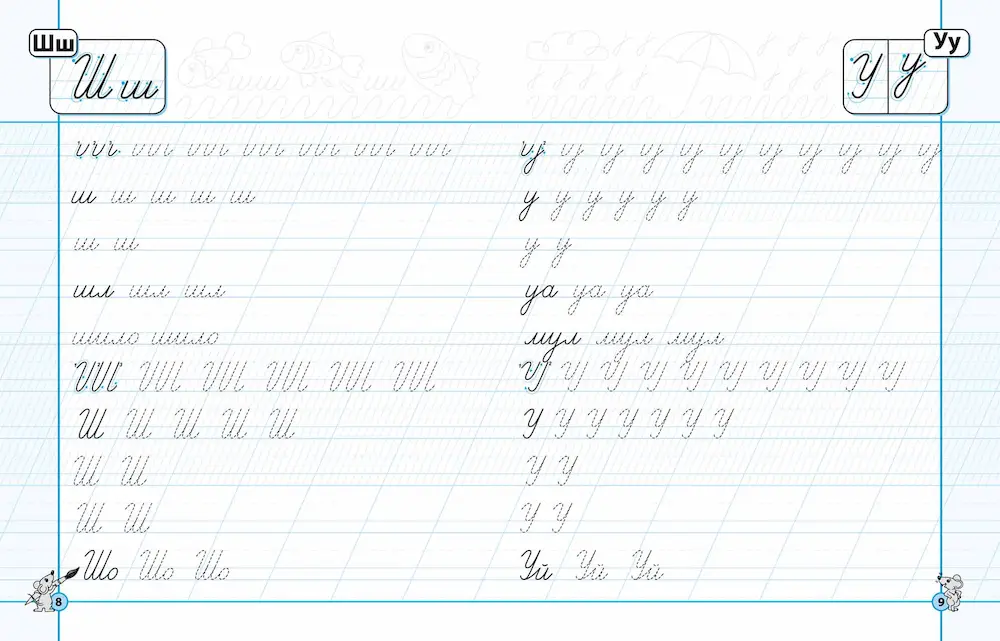 Шш
Ш ш
ш ш ш ш ш
ш ш
шл шл шл
шило шило
Ш Ш Ш Ш Ш
Ш Ш
Ш Ш
Шо Шо Шо
8
Уу
У у
у у у у у у
у у
уа уа уа
мул мул мул
У У У У У У У
У У
У У
Уй Уй Уй
9